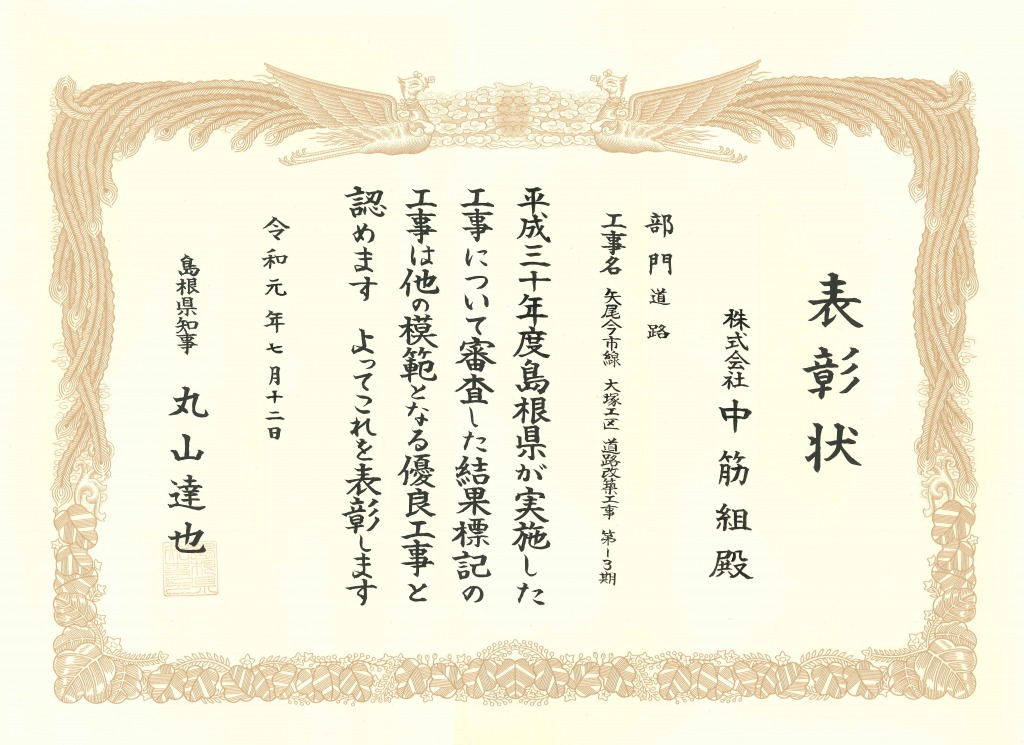 表彰状
株式会社 中筋組 殿
部門 道路
工事名 矢尾今市線 大塚工区 道路改築工事 第1-3期
平成三十年度島根県が実施した
工事について審査した結果標記の
工事は他の模範となる優良工事と
認めます よってこれを表彰します
令和元年七月十二日
島根県知事 丸山達也